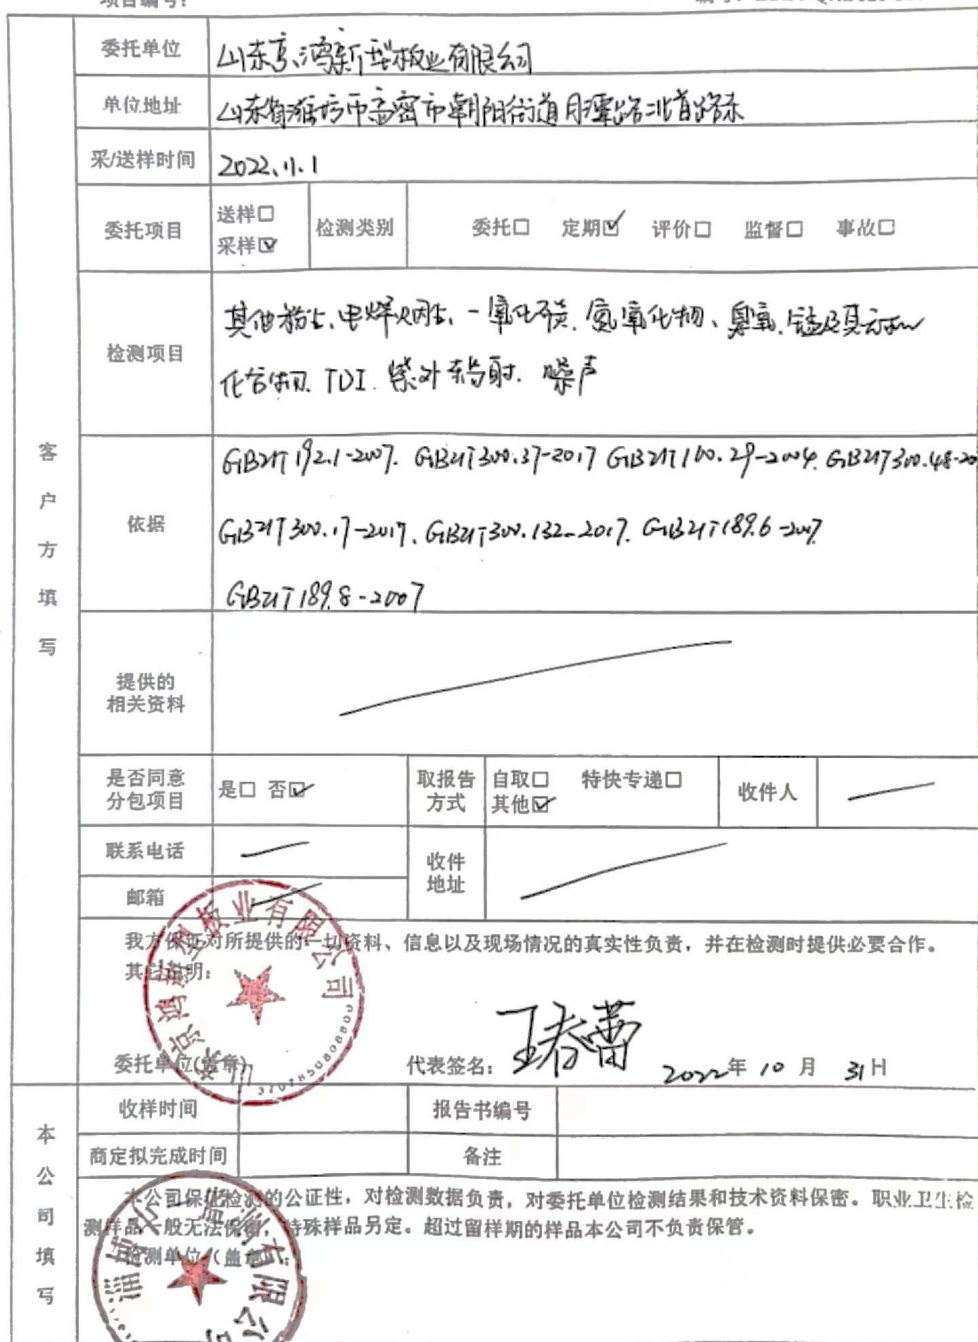 项目编号：
委托单位 山东京鸿新型板业有限公司
单位地址 山东省潍坊市高密市朝阳街道月潭路北首路东
采/送样时间 2022.11.1
委托项目 送样□ 采样☑ 检测类别 委托□ 定期☑ 评价□ 监督□ 事故□
检测项目 其他粉尘、电焊烟尘、一氧化碳、氮氧化物、臭氧、锰及其无机
化合物、TDI、紫外辐射、噪声
客户方填写
依据 GBZ/T 192.1-2007. GBZ/T 300.37-2017 GBZ/T 160.29-2004. GBZ/T 300.48-20
GBZ/T 300.17-2017. GBZ/T 300.132-2017. GBZ/T 189.6-2007.
GBZ/T 189.8-2007
提供的
相关资料
是否同意
分包项目 是□ 否☑ 取报告
方式 自取□ 特快专递□
其他☑ 收件人
联系电话 收件
地址
邮箱
我方保证对所提供的一切资料、信息以及现场情况的真实性负责，并在检测时提供必要合作。
其它说明：
委托单位(盖章) 代表签名： 王春蕾 2022年10月31日
山东京鸿新型板业有限公司
本公司填写
收样时间 报告书编号
商定拟完成时间 备注
本公司保证检测的公证性，对检测数据负责，对委托单位检测结果和技术资料保密。职业卫生检
测样品一般无法保留，特殊样品另定。超过留样期的样品本公司不负责保管。
检测单位（盖章）